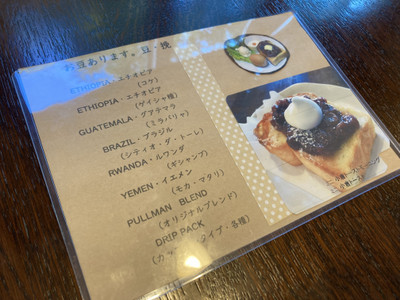 お豆あります。豆・挽
ETHIOPIA・エチオピア
(コケ)
ETHIOPIA・エチオピア
(ゲイシャ種)
GUATEMALA・グアテマラ
(ミラバリャ)
BRAZIL・ブラジル
(シティオ・ダ・トーレ)
RWANDA・ルワンダ
(ギシャンブ)
YEMEN・イエメン
(モカ・マタリ)
PULLMAN BLEND
(オリジナルブレンド)
DRIP PACK
イプ・各種)